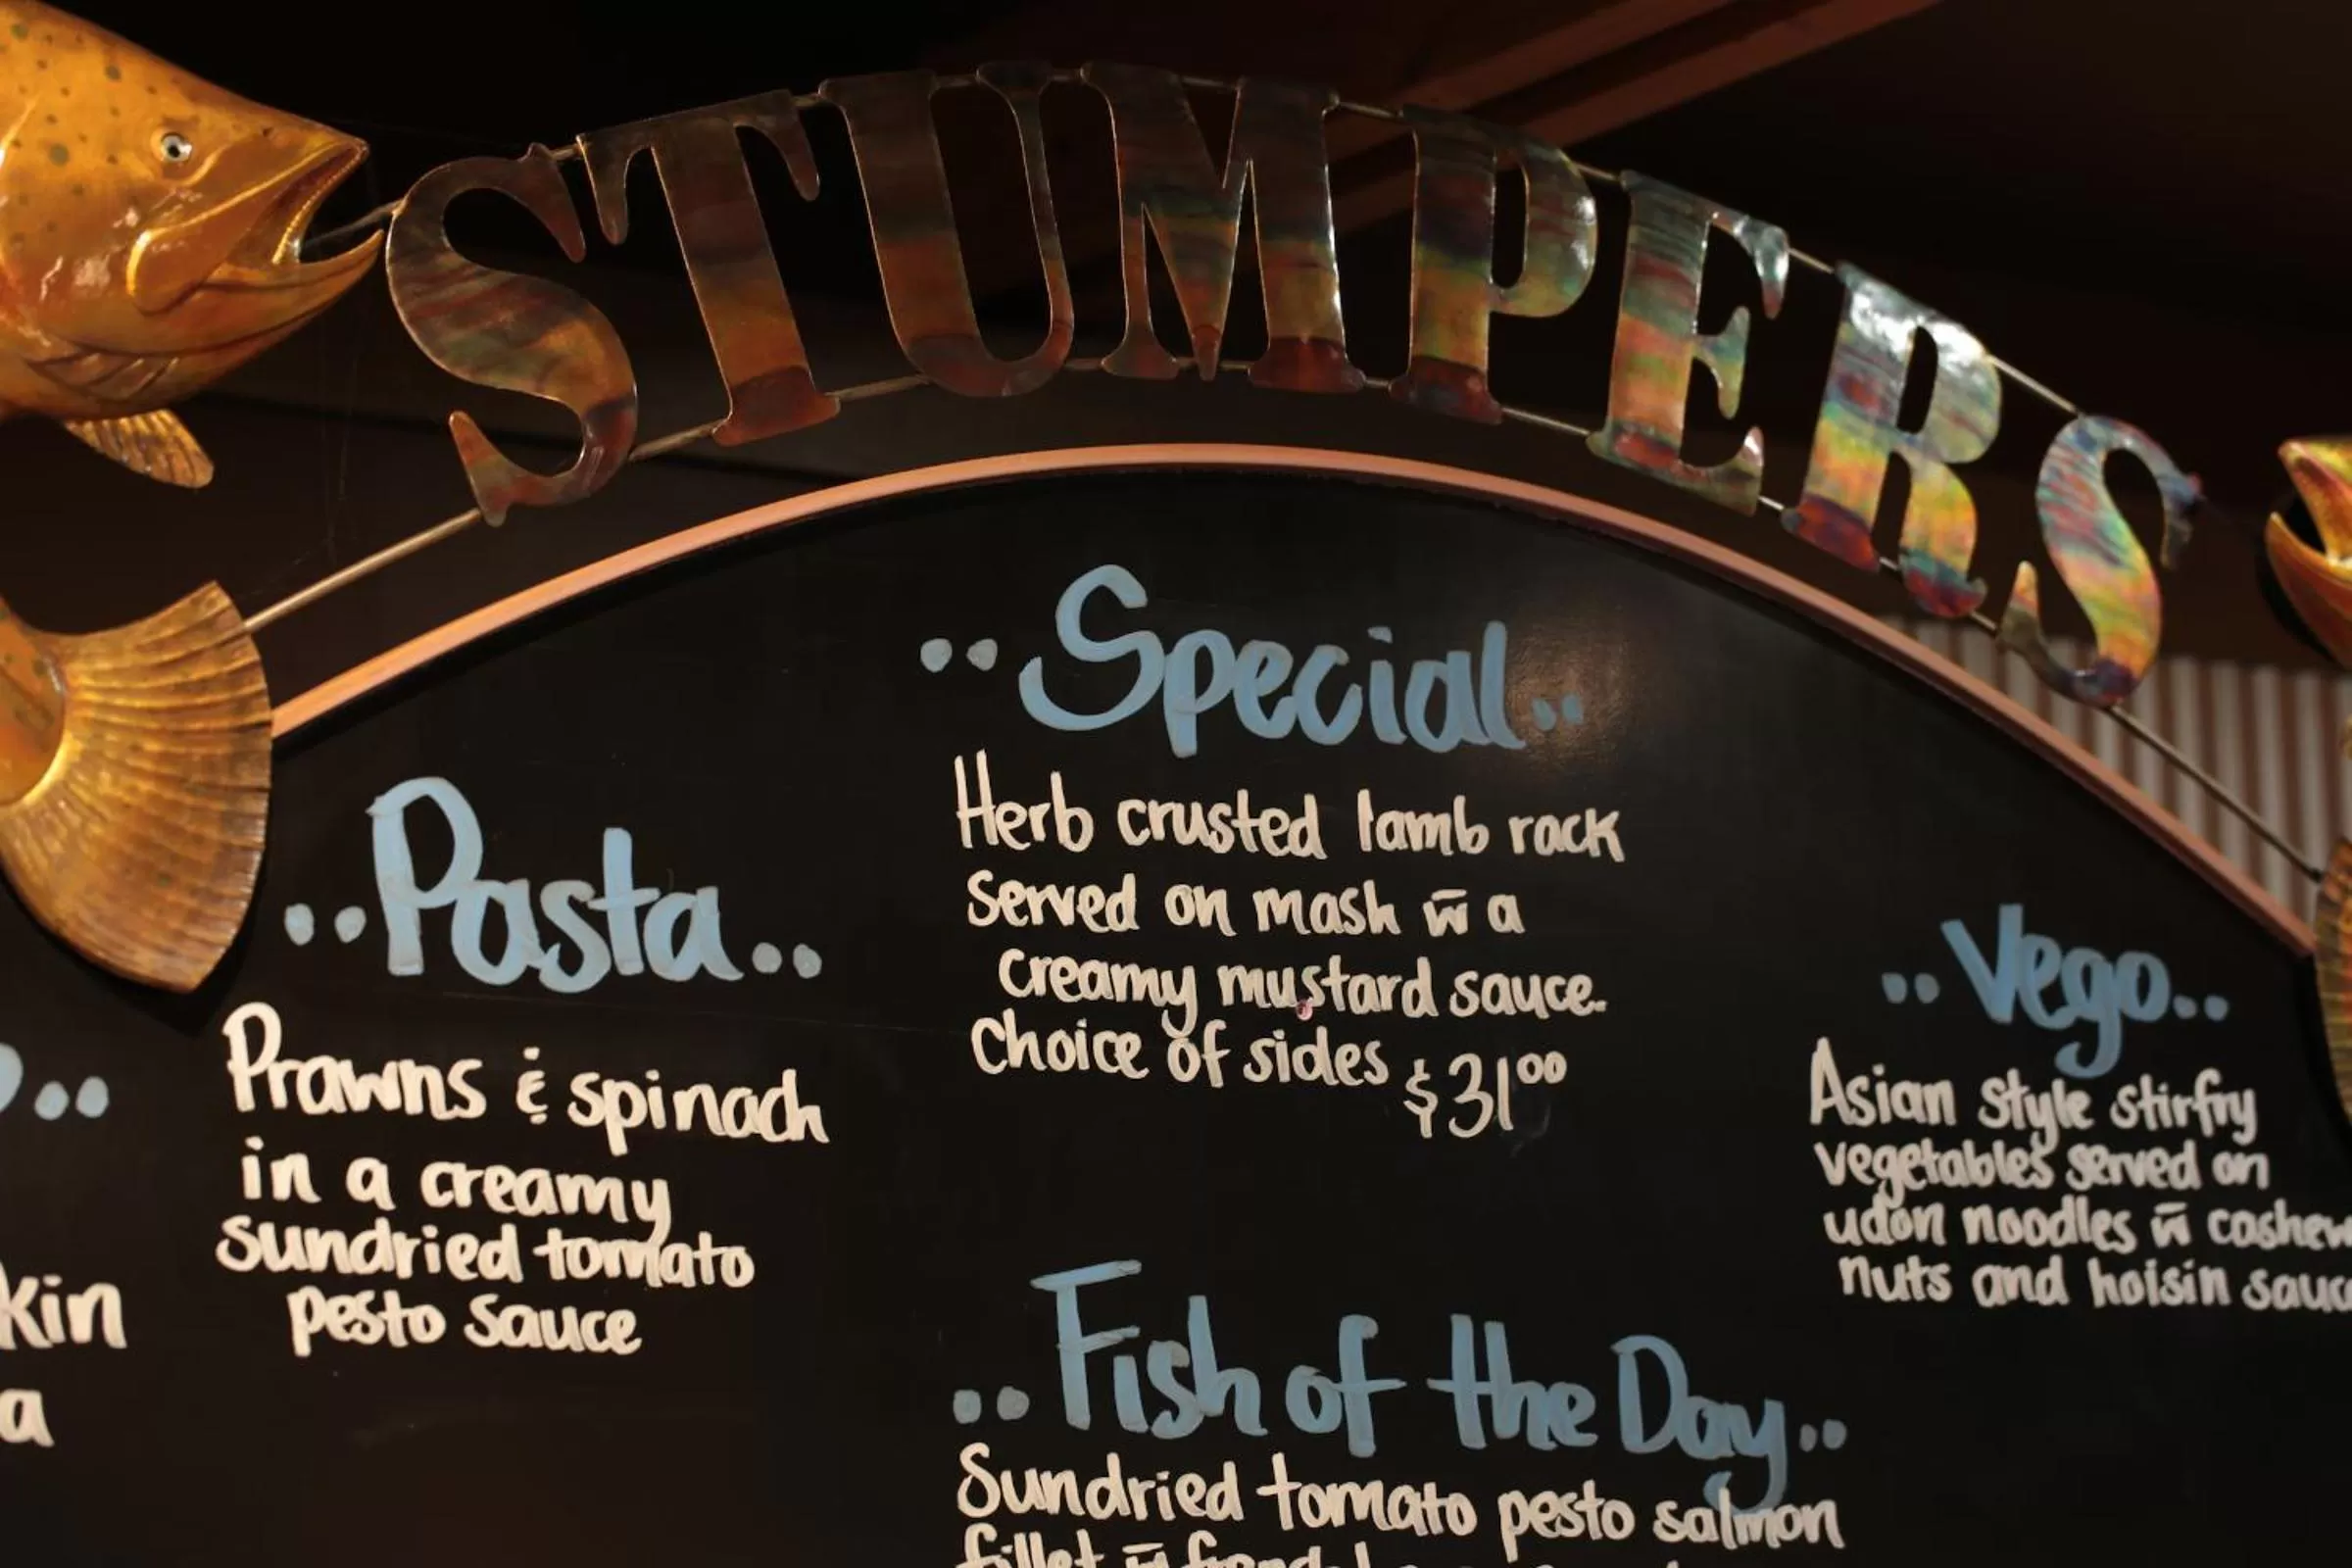 STUMPERS
..Special..
Herb crusted lamb rack
Served on mash w̄ a
creamy mustard sauce.
Choice of sides $31⁰⁰
..Pasta..
Prawns & spinach
in a creamy
sundried tomato
pesto sauce
..Vego..
Asian style stirfry
vegetables served on
udon noodles w̄ cashew
nuts and hoisin
..Fish of the Day..
Sundried tomato pesto salmon
fillet w̄
kin
a